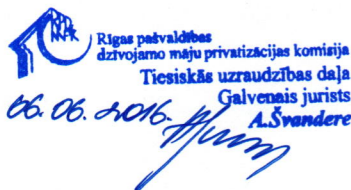 Rīgas pašvaldības
dzīvojamo māju privatizācijas komisija
Tiesiskās uzraudzības daļa
Galvenais jurists
A.Švandere
06.06.2016.